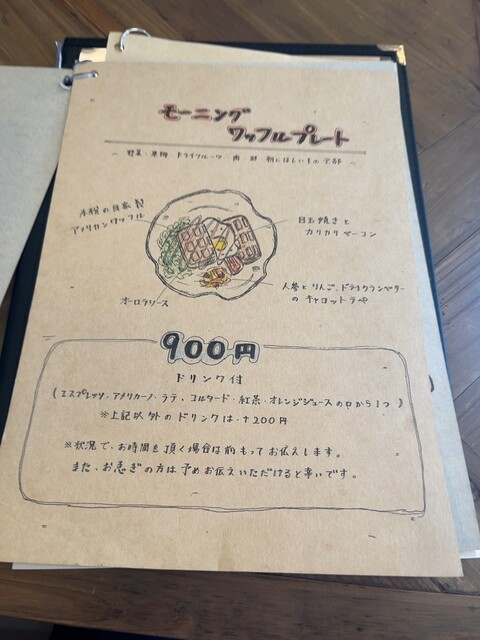 モーニング
ワッフルプレート
~ 野菜・果物 ドライフルーツ 肉 卵 朝にほしいもの全部 ~
米粉の自家製
アメリカンワッフル
目玉焼きと
カリカリベーコン
オーロラソース
人参とりんご、ドライクランベリー
のキャロットラペ
900円
ドリンク付
(エスプレッソ・アメリカーノ・ラテ・コルタード・紅茶・オレンジジュースの中から1つ)
※上記以外のドリンクは+200円
※状況で、お時間を頂く場合は前もってお伝えします。
また、お急ぎの方は予めお伝えいただけると幸いです。